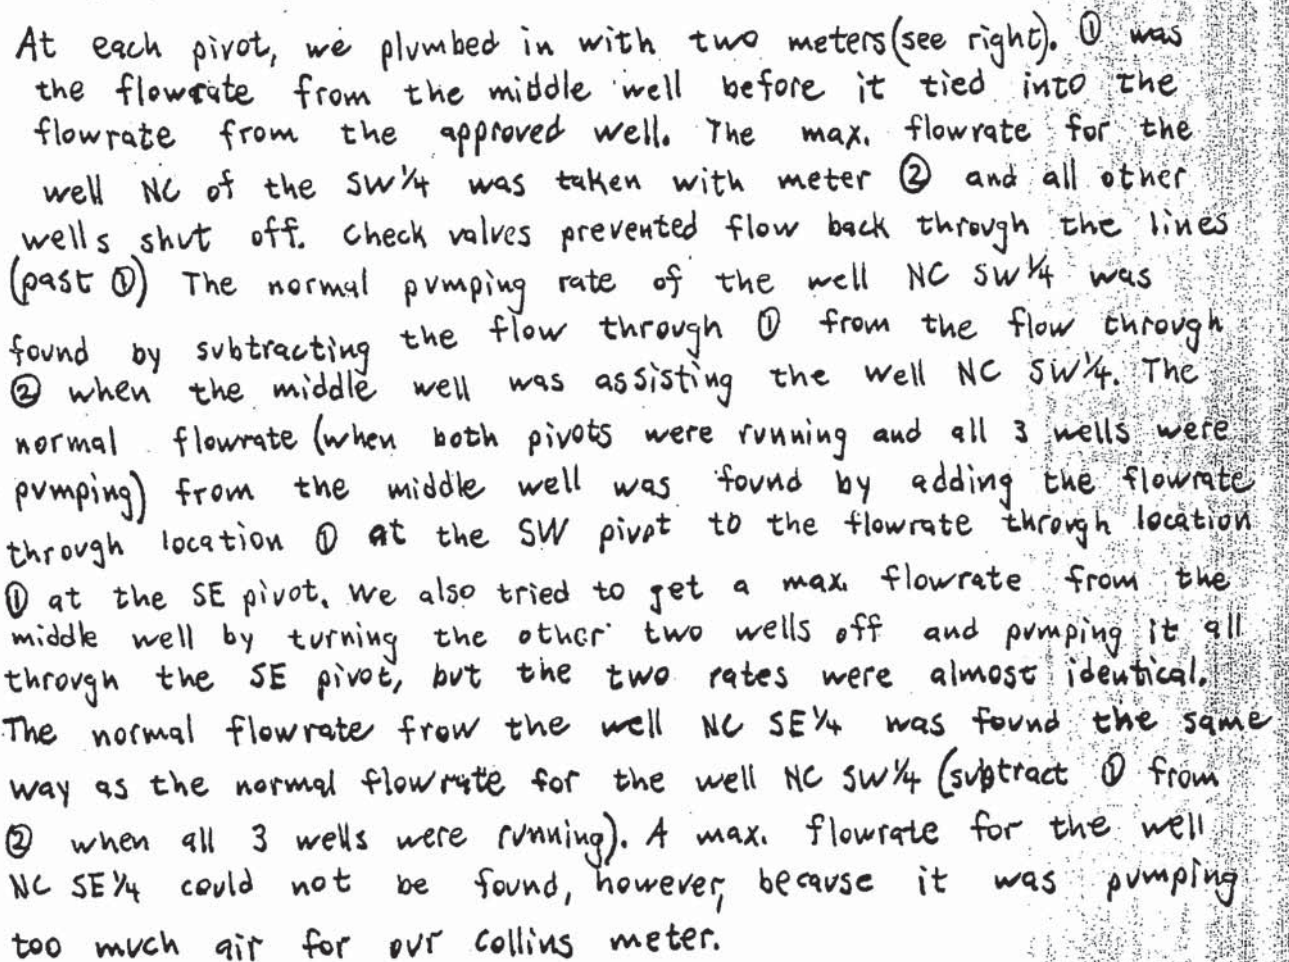 At each pivot, we plumbed in with two meters (see right). ① was
the flowrate from the middle well before it tied into the
flowrate from the approved well. The max. flowrate for the
well NC of the SW¼ was taken with meter ② and all other
wells shut off. Check valves prevented flow back through the lines
(past ①) The normal pumping rate of the well NC SW¼ was
found by subtracting the flow through ① from the flow through
② when the middle well was assisting the well NC SW¼. The
normal flowrate (when both pivots were running and all 3 wells were
pumping) from the middle well was found by adding the flowrate
through location ① at the SW pivot to the flowrate through location
① at the SE pivot. We also tried to get a max. flowrate from the
middle well by turning the other two wells off and pumping it all
through the SE pivot, but the two rates were almost identical.
The normal flowrate from the well NC SE¼ was found the same
way as the normal flowrate for the well NC SW¼ (subtract ① from
② when all 3 wells were running). A max. flowrate for the well
NC SE¼ could not be found, however, because it was pumping
too much air for our Collins meter.